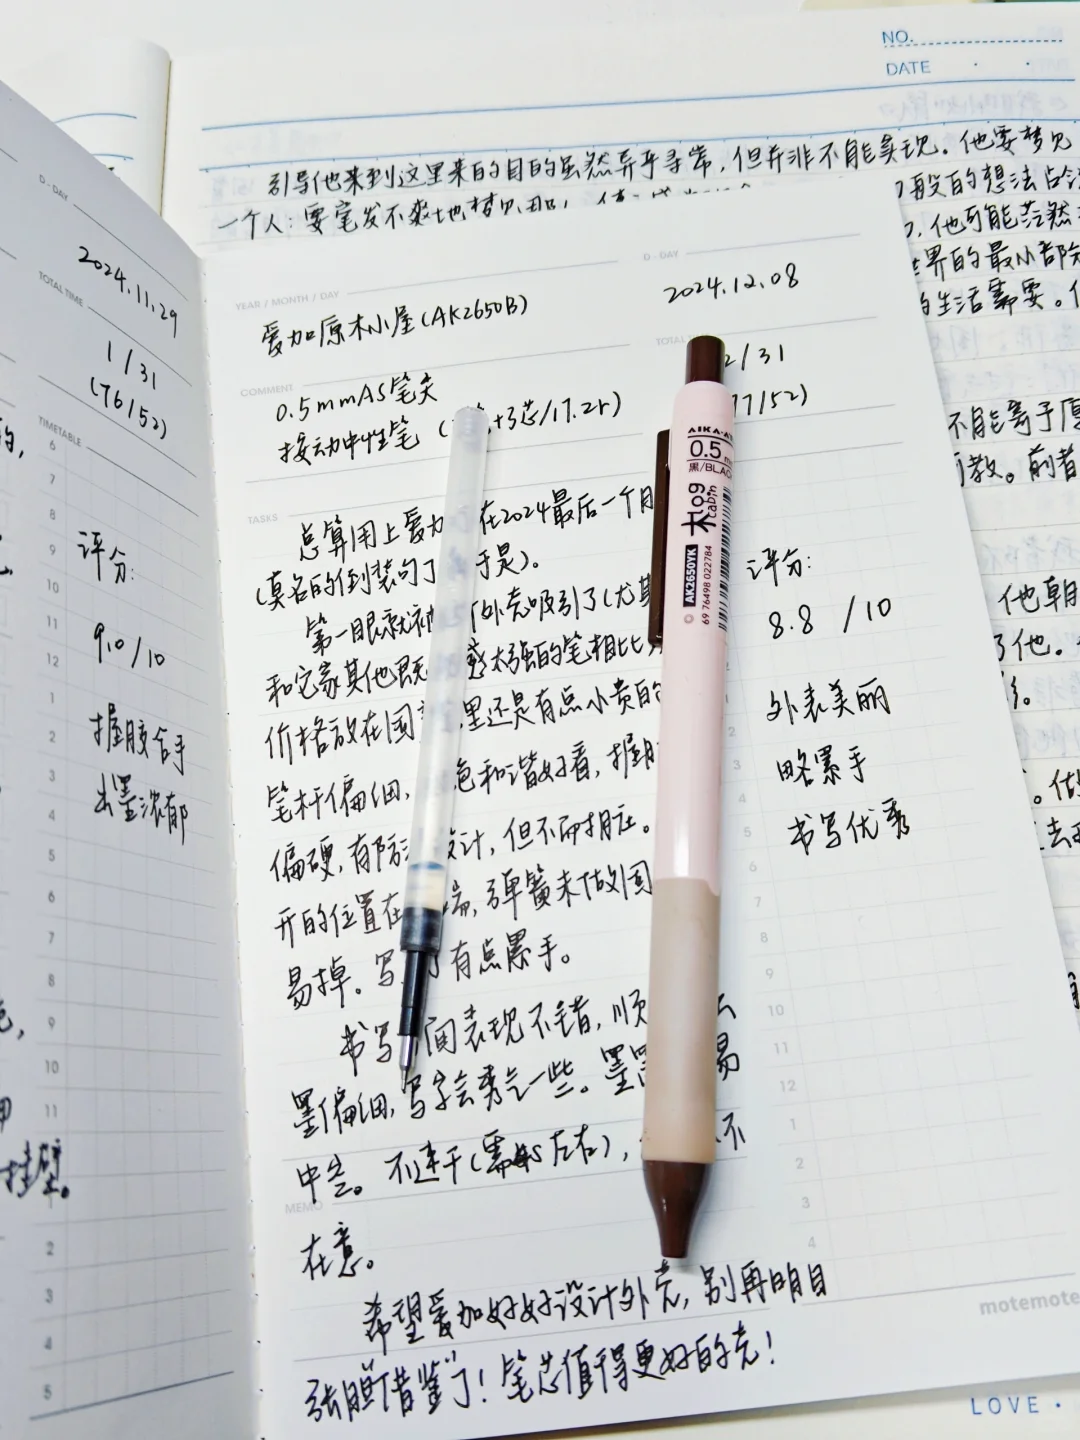 NO.
DATE
引导他来到这里来的目的虽然异乎寻常,但并非不能实现。他要梦见
一个人:要毫发不爽地梦见
段的想法占
他可能茫然
世界的最小部分
的生活需要。
不能离于原
而教。前者
他朝
了他。
D-DAY
2024.11.29
TOTAL TIME
1/31
(76/52)
TIMETABLE
6
7
8
9
10
11
12
1
2
3
4
5
6
7
8
9
10
11
12
1
2
3
4
5
评分:
9.0/10
握胶合手
出墨浓郁
挂壁。
YEAR / MONTH / DAY
爱加原木小屋(AK2650B)
D-DAY
2024.12.08
COMMENT
0.5mmAS笔尖
按动中性笔 +3芯/17.2r)
TOTAL
2/31
77/52)
TASKS
总算用上爱加 在2024最后一个月
(莫名的倒装句了 于是)。
第一眼就被 外壳吸引了(尤其
和它家其他既 感太强的笔相比
价格放在国 里还是有点小贵的
笔杆偏细, 色和谐好看,握
偏硬,有防 设计,但不耐脏。
开的位置在 端,弹簧未做固
易掉。写 有点累手。
书写 间表现不错,顺
墨偏细,写字会秀气一些。墨 易
中尘。不速干(需 8s左右), 不
MEMO
在意。
希望爱加好好设计外壳,别再明目
张胆"借鉴"了!笔芯值得更好的壳!
评分:
8.8 /10
外表美丽
略累手
书写优秀
0.5
黑/BLACK
木 Log cabin
AK2650YK
69 76498 022784
motemote
LOVE ·